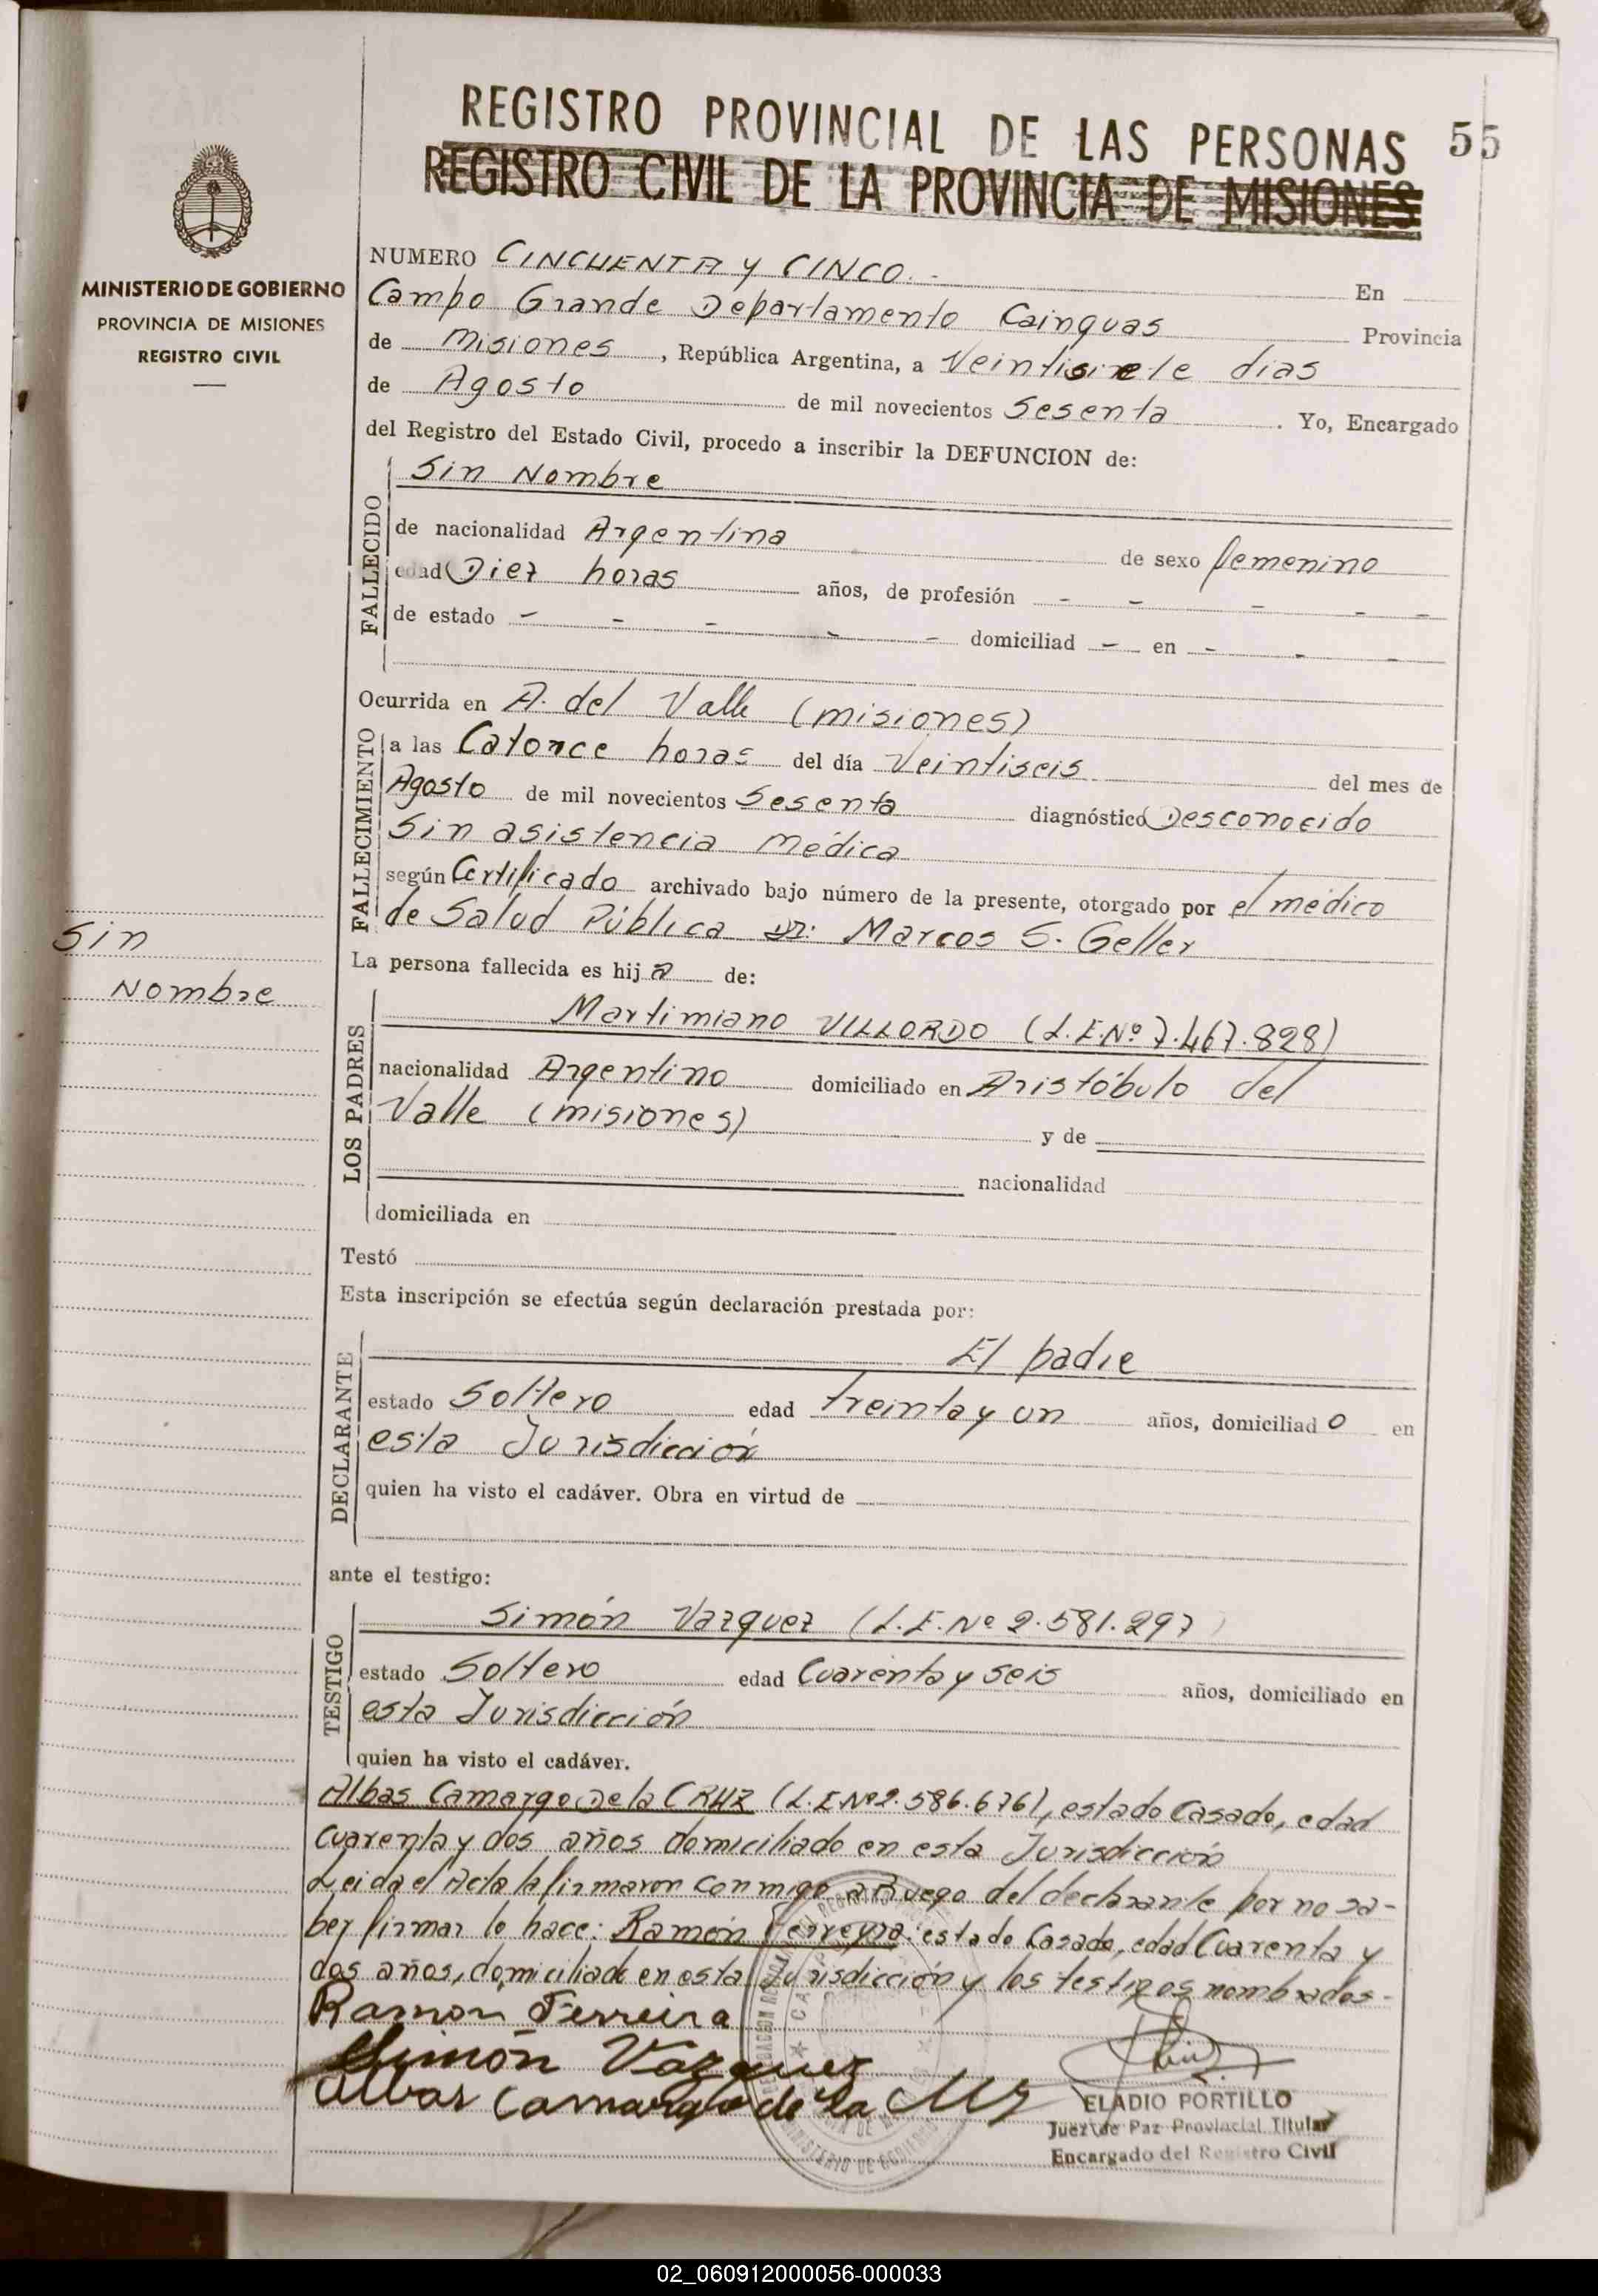 REGISTRO PROVINCIAL DE LAS PERSONAS 55
REGISTRO CIVIL DE LA PROVINCIA DE MISIONES
MINISTERIO DE GOBIERNO
PROVINCIA DE MISIONES
REGISTRO CIVIL
NUMERO CINCUENTA y CINCO.- En
Campo Grande Departamento Cainguas Provincia
de Misiones, República Argentina, a Veintisiete dias
de Agosto de mil novecientos Sesenta. Yo, Encargado
del Registro del Estado Civil, procedo a inscribir la DEFUNCION de:
FALLECIDO
Sin Nombre
de nacionalidad Argentina de sexo femenino
edad Diez horas años, de profesión - - - - -
de estado - - - - - domiciliad - en - - -
Ocurrida en A. del Valle (misiones)
FALLECIMIENTO
a las Catorce horas del día Veintiseis del mes de
Agosto de mil novecientos Sesenta diagnóstico Desconocido
Sin asistencia médica
según Certificado archivado bajo número de la presente, otorgado por el médico
de Salud Pública Dr. Marcos S. Geller
Sin
Nombre
La persona fallecida es hija de:
LOS PADRES
Martimiano VILLORDO (L.E.Nº 7.467.828)
nacionalidad Argentino domiciliado en Aristóbulo del
Valle (misiones) y de
nacionalidad
domiciliada en
Testó
Esta inscripción se efectúa según declaración prestada por:
DECLARANTE
El padre
estado Soltero edad treinta y un años, domiciliado en
esta Jurisdicción
quien ha visto el cadáver. Obra en virtud de
ante el testigo:
TESTIGO
Simón Vazquez (L.E.Nº 2.581.297)
estado Soltero edad Cuarenta y seis años, domiciliado en
esta Jurisdicción
quien ha visto el cadáver.
Albas Camargo De la CRUZ (L.E.Nº2.586.676), estado Casado, edad
cuarenta y dos años domiciliado en esta Jurisdicción
Leida el Acta la firmaron conmigo a Ruego del declarante por no sa-
ber firmar lo hace: Ramón Ferreyra: estado Casado, edad Cuarenta y
dos años, domiciliado en esta Jurisdicción y los testigos nombrados-
Ramon Ferreira
Simón Vazquez
Albas Camargo de la Cruz
ELADIO PORTILLO
Juez de Paz Provincial Titular
Encargado del Registro Civil
MINISTERIO DE GOBIERNO
02_060912000056-000033